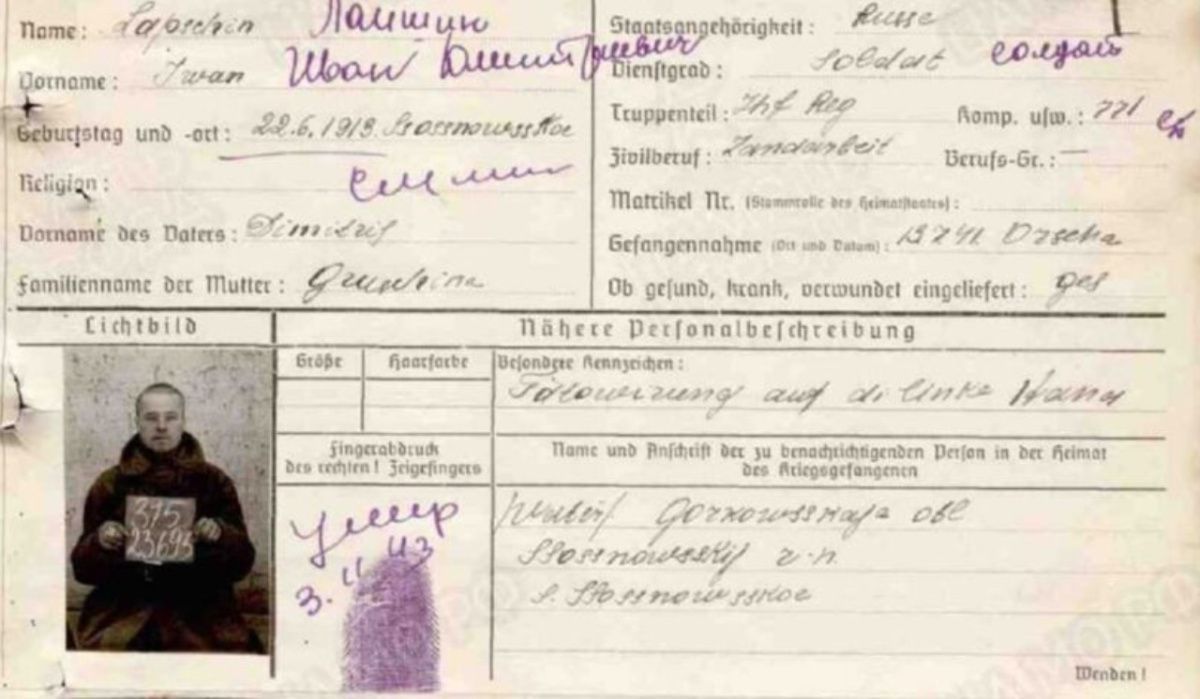 Name: Lapschin Лапшин
Vorname: Iwan Иван Дмитриевич
Geburtstag und -ort: 22.6.1913. Ssossnowsskoe
Religion:
Vorname des Vaters: Dimitrij
Familienname der Mutter:
Staatsangehörigkeit: Russe
Dienstgrad: Soldat солдат
Truppenteil: Inf Reg Komp. usw.: 771
Zivilberuf: Landarbeit Berufs-Gr.: —
Matrikel Nr. (Stammrolle des Heimatstaates):
Gefangennahme (Ort und Datum): Orscha
Ob gesund, krank, verwundet eingeliefert: ges
Lichtbild
Nähere Personalbeschreibung
Größe Haarfarbe Besondere Kennzeichen:
Tätowirung auf di linke Hand
Fingerabdruck
des rechten! Zeigefingers
Name und Anschrift der zu benachrichtigenden Person in der Heimat
des Kriegsgefangenen
умер
3. 11 43
Gorkowsskaja obl
Ssossnowsskij r-n
s. Ssossnowsskoe
375
23695
Wenden!